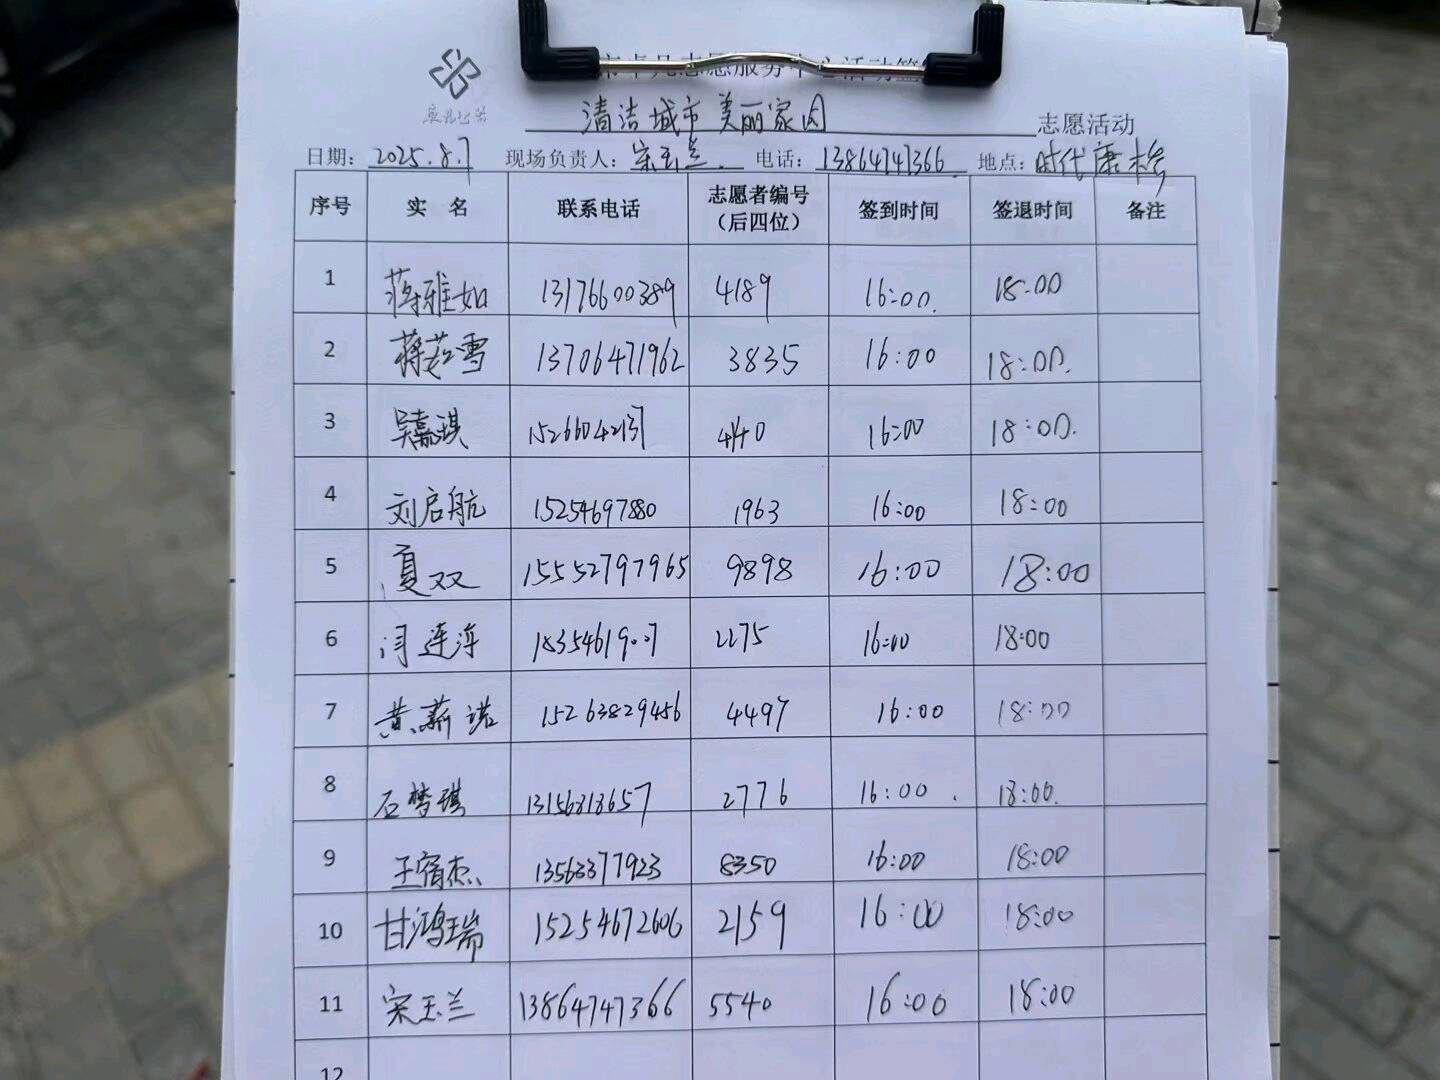 卓凡志愿服务中心活动签
清洁城市 美丽家园 志愿活动
日期: 2025.8.7 现场负责人: 宋玉兰. 电话: 13864747366 地点: 时代康桥
序号 实 名 联系电话 志愿者编号（后四位） 签到时间 签退时间 备注
1 蒋雅如 13176600389 4189 16:00. 18:00
2 蒋若雪 13706471962 3835 16:00 18:00.
3 吴嘉琪 4140 16:00 18:00.
4 刘启航 15254697880 1963 16:00 18:00
5 夏双双 15552797965 9898 16:00 18:00
6 闫连萍 2275 16:00 18:00
7 黄薪诺 15263829456 4497 16:00 18:00
8 石梦琪 13156818657 2776 16:00. 18:00.
9 王宿杰 13563377923 8350 16:00 18:00
10 甘鸿瑞 15254672606 2159 16:00 18:00
11 宋玉兰 13864747366 5540 16:00 18:00
12